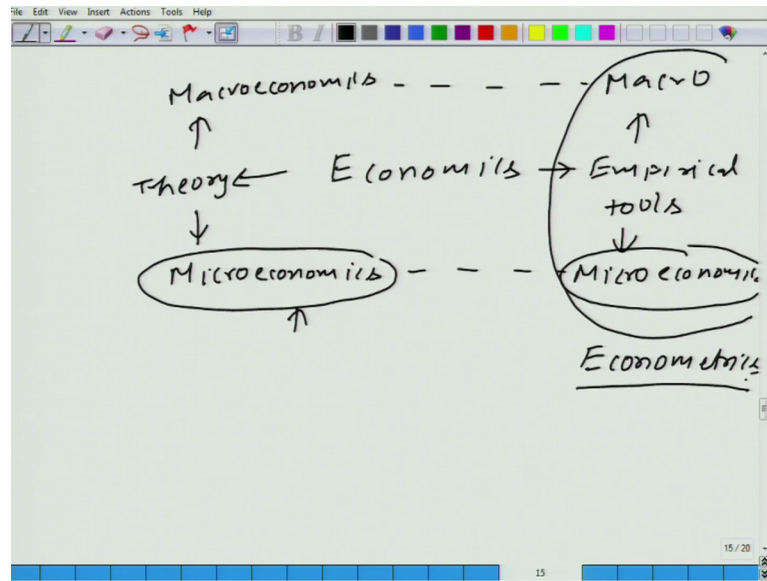 File Edit View Insert Actions Tools Help
B I
Macroeconomics - - - - - Macro
Theory ← Economics → Empirical
tools
Microeconomics - - - - Microeconomic
Econometrics
15 / 20
15